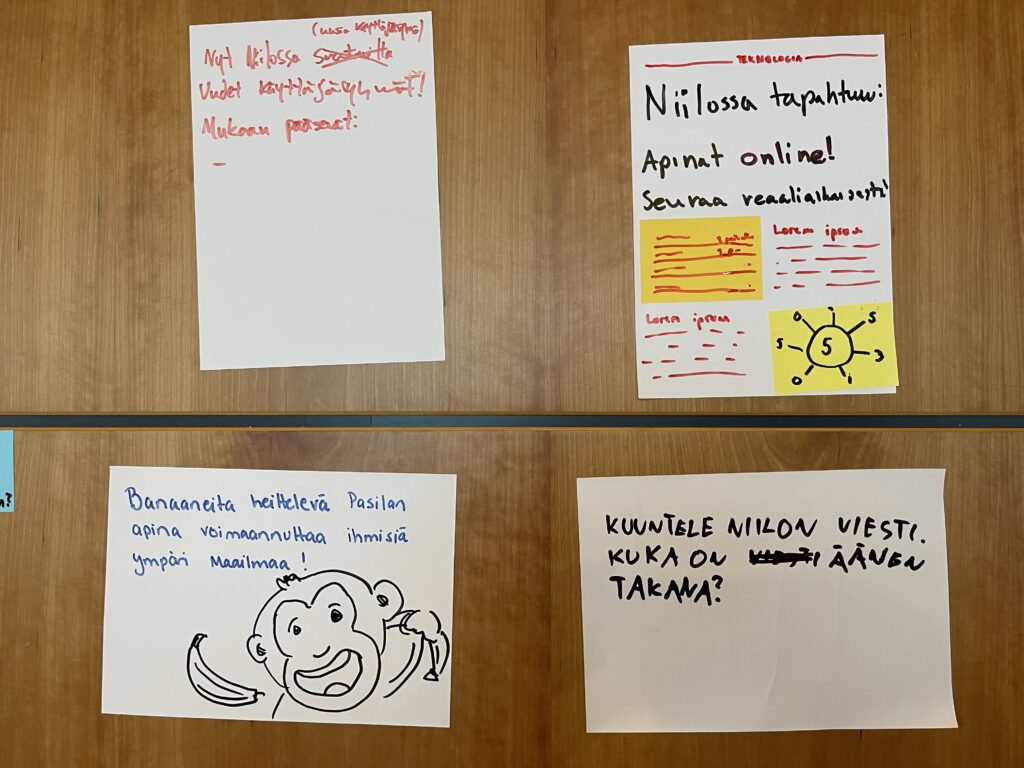 (uusia käyttäjäryhmiä)
Nyt Niilossa
Uudet käyttäjäryhmät!
Mukaan pääsevät:
–
TEKNOLOGIA
Niilossa tapahtuu:
Apinat online!
Seuraa reaaliaikaisesti!
Lorem ipsum
Lorem ipsum
0 1 5
5 5 3
0 1
Banaaneita heittelevä Pasilan
apina voimaannuttaa ihmisiä
ympäri maailmaa!
KUUNTELE NIILON VIESTI.
KUKA ON ÄÄNEN
TAKANA?